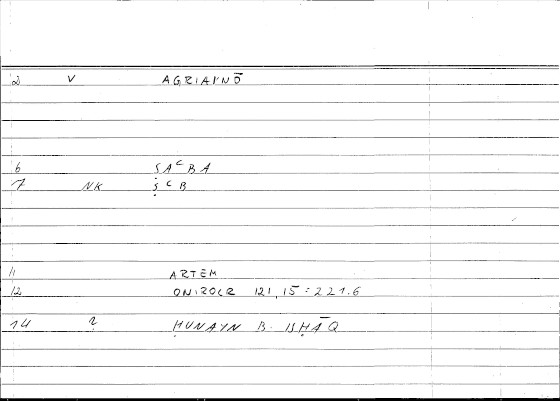 2 V AGRIAINŌ
6 ṢAʿBA
7 NK ṢʿB
11 ARTEM
12 ONIROCR 121,15 = 221.6
14 2 ḤUNAYN B. ISḤĀQ